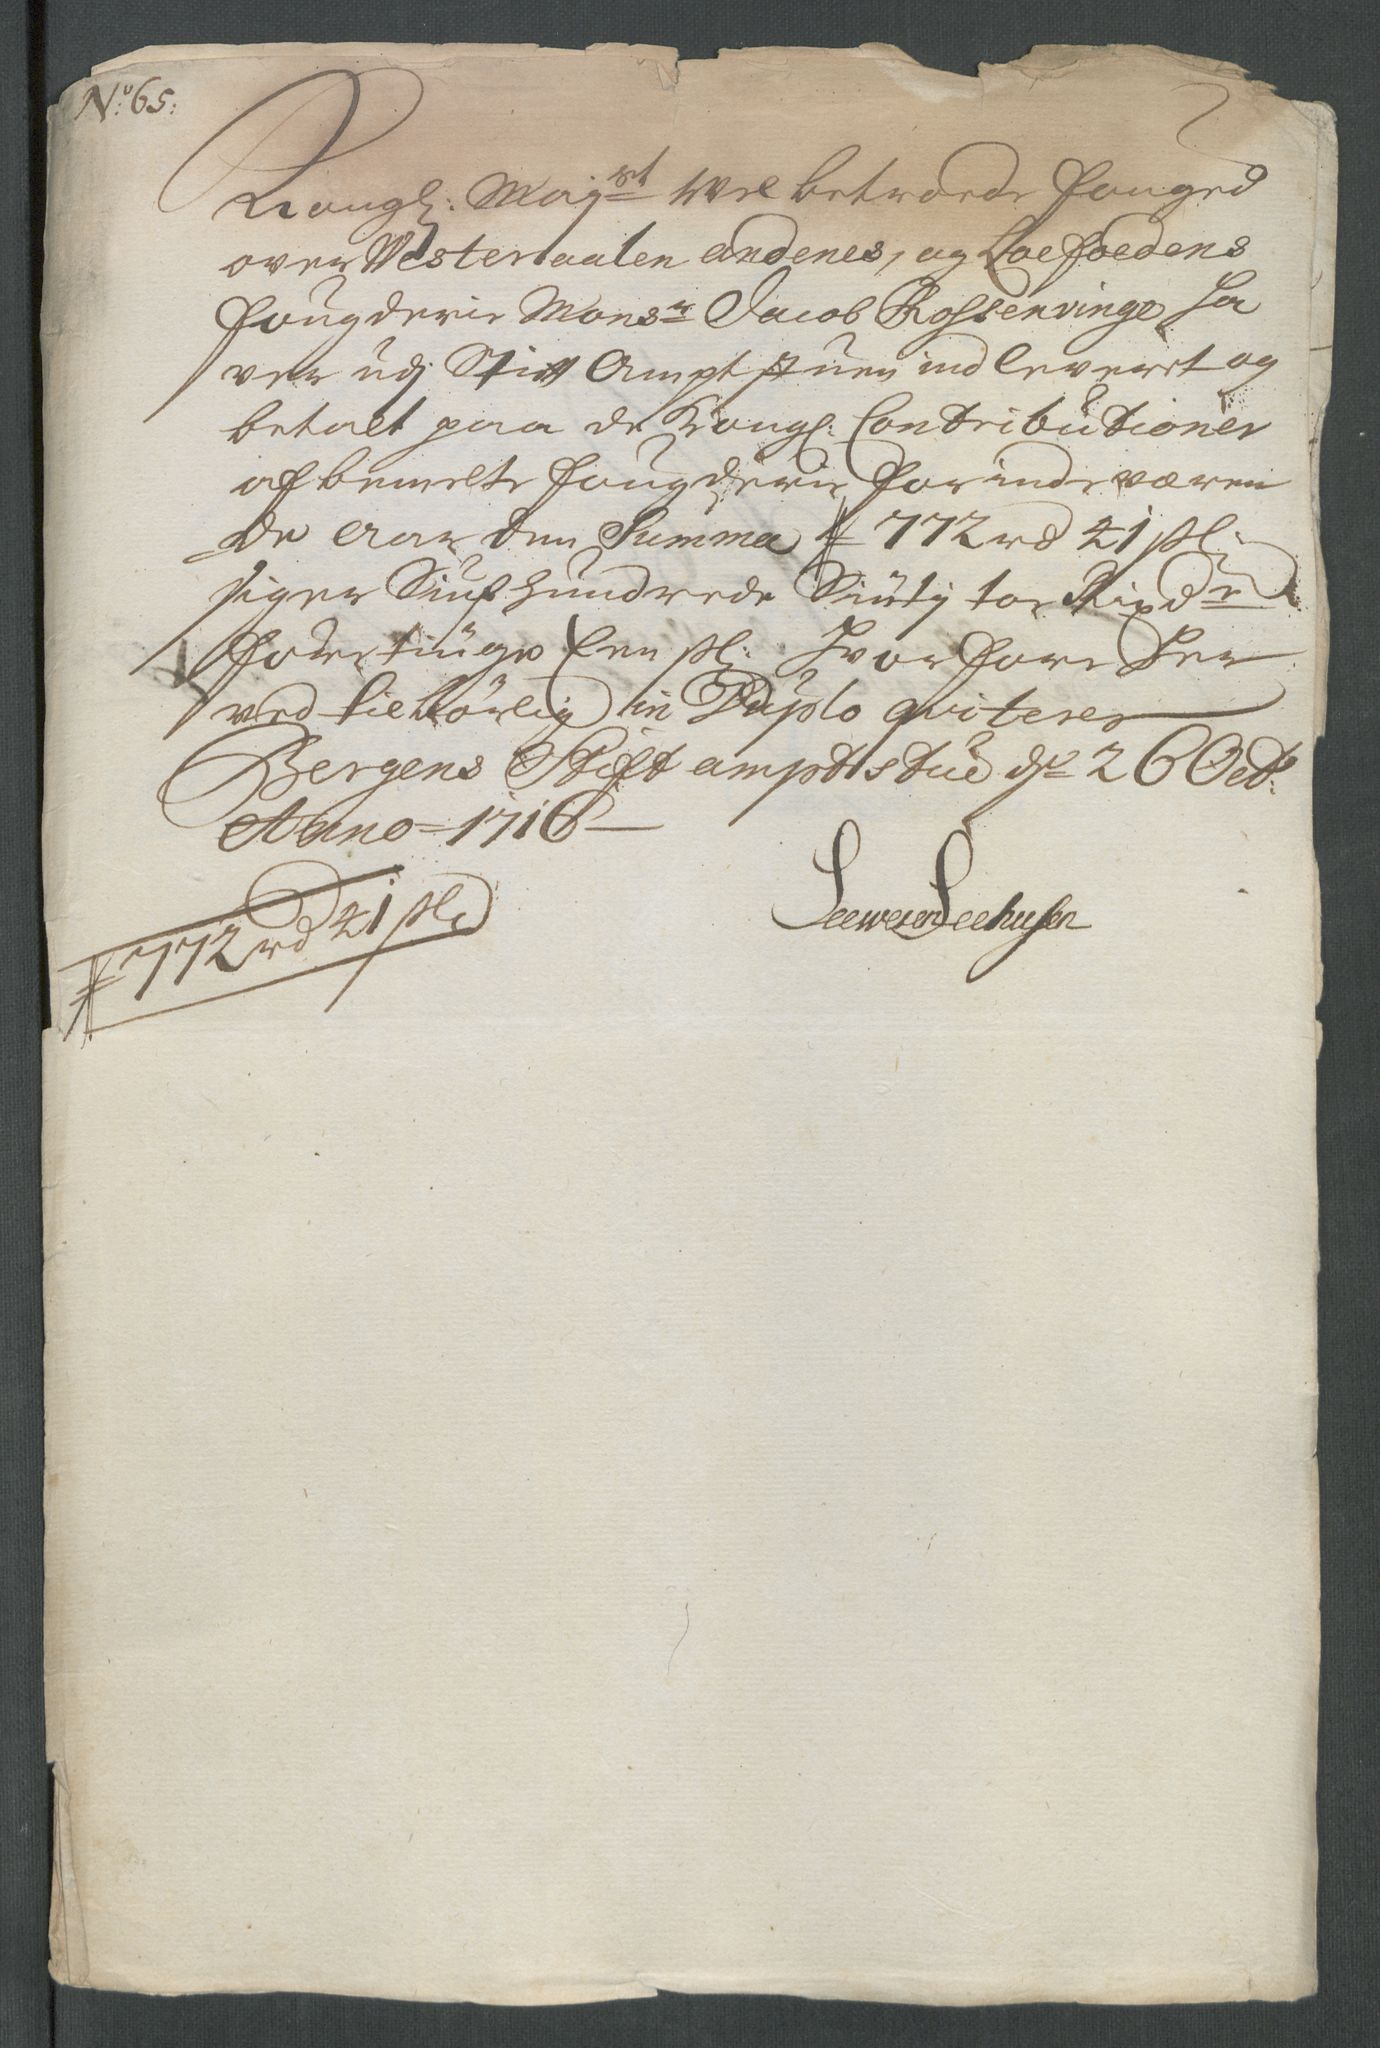 No: 65:
Kongl: Maj:st Wel betroede Fouged
over Westeraalen andenes, og Loefoedens
Fougderie Monsr Jacob Rossenvinge, Ha
ver udj Stift Ampt stuen ind leveret og
betalt paa de Kongl: Contributioner
af bemelte Fougderie for inde væren
de Aar den Summa 772 rd 41 sl:
siger Siuf hundrede Siutj toe Rixdr
foder tiuge Een sl: Hvorfore Her
ved tilbörlig in Duplo qviterer
Bergens Stift ampts stue de 26 Octb:
Anno 1716
772 rd 41 sl:
Seeweren Seehusen